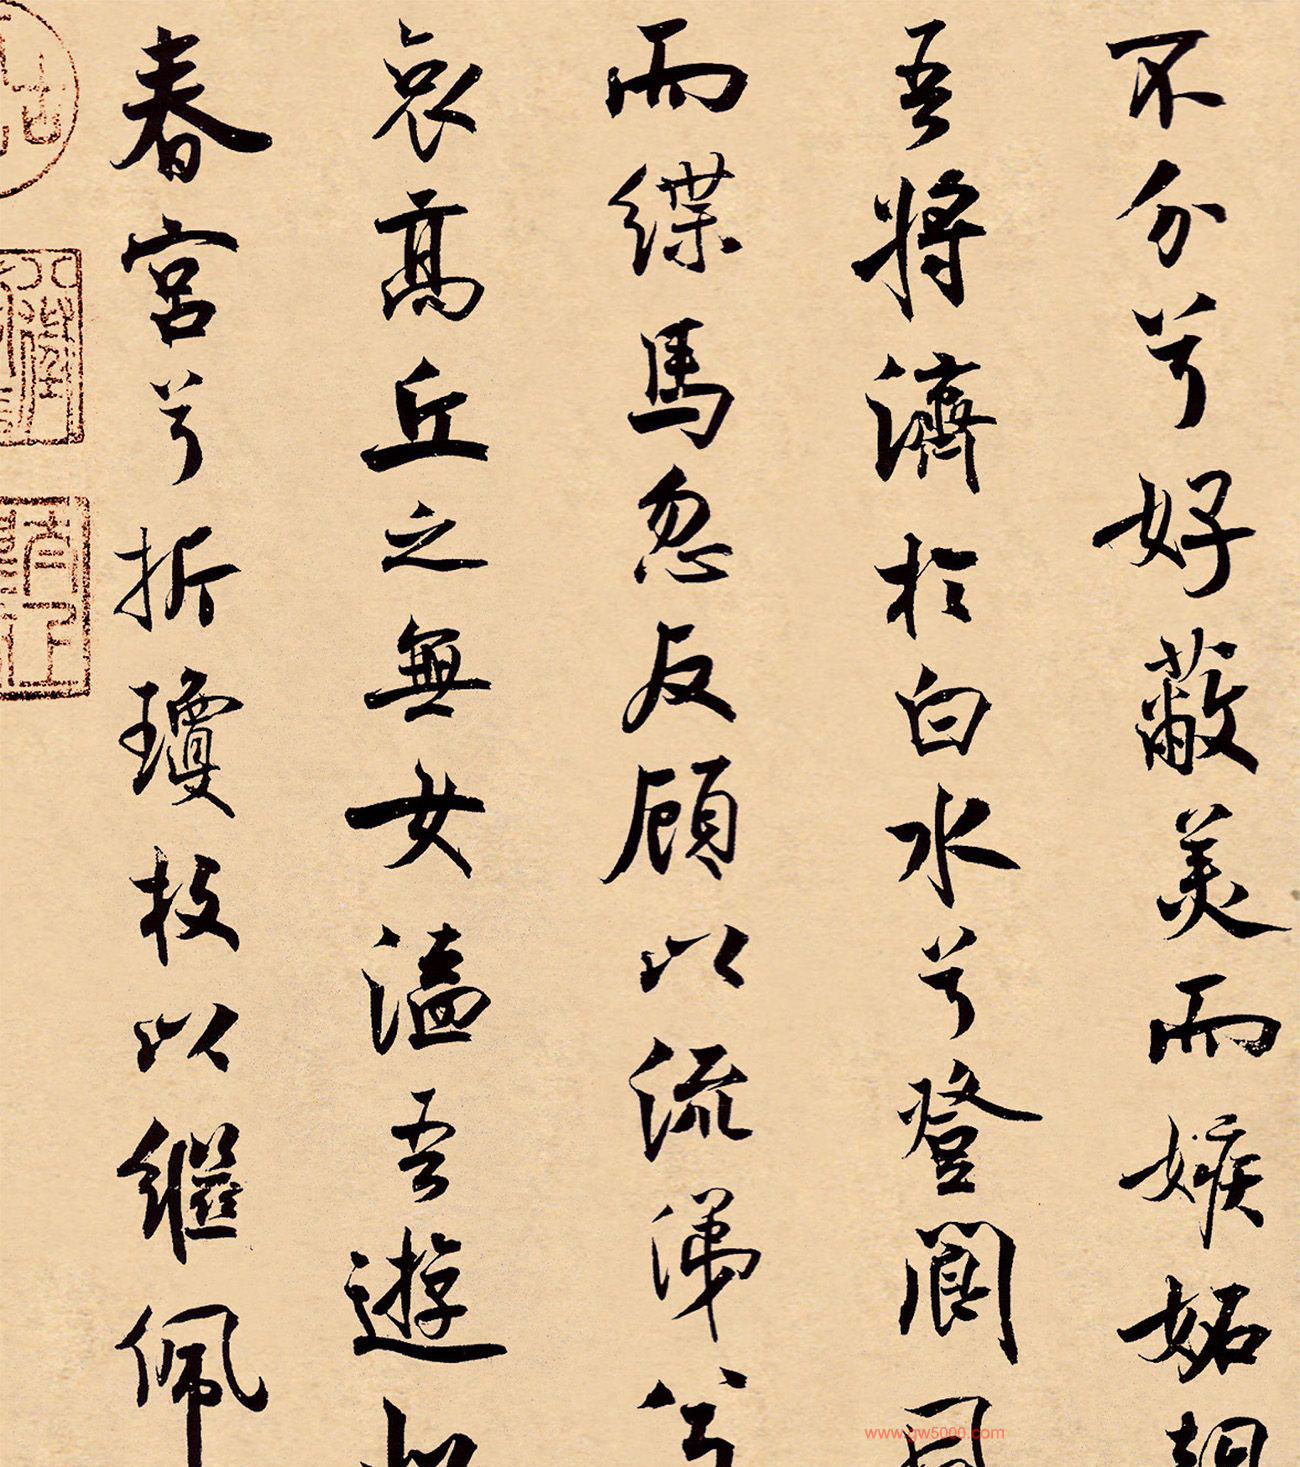 不分兮好蔽美而嫉妬朝
吾將濟於白水兮登閬風
而緤馬忽反顧以流涕兮
哀高丘之無女溘吾遊此
春宮兮折瓊枝以繼佩
www.gw5000.com